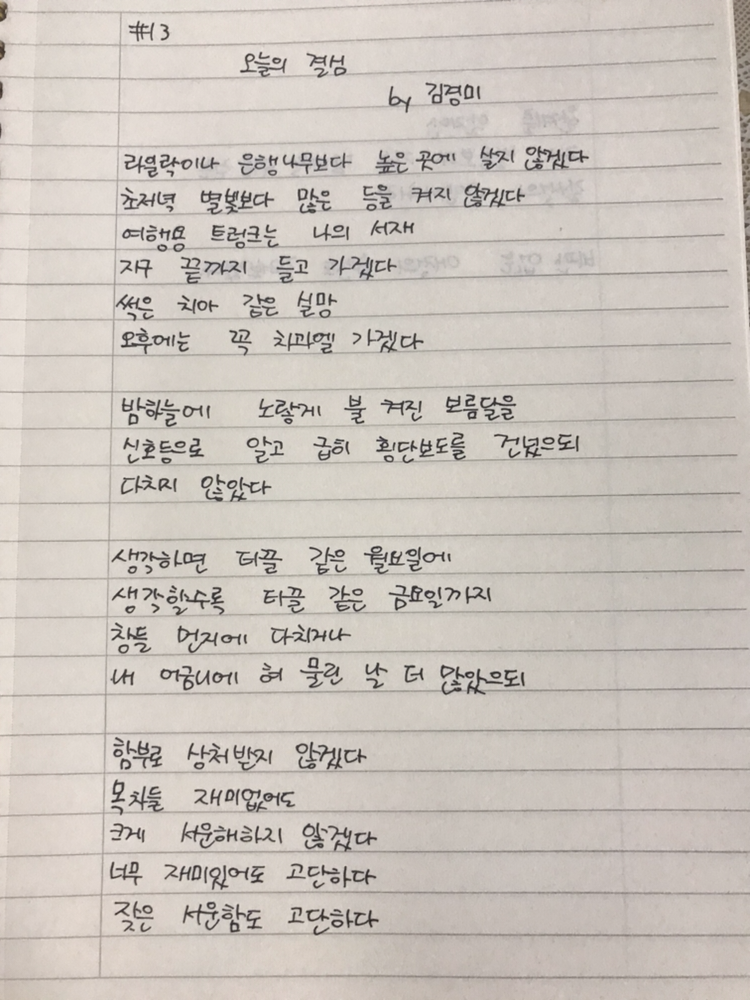 #13
오늘의 결심
by 김경미
라일락이나 은행나무보다 높은 곳에 살지 않겠다
초저녁 별빛보다 많은 등을 켜지 않겠다
여행용 트렁크는 나의 서재
지구 끝까지 들고 가겠다
썩은 치아 같은 실망
오후에는 꼭 치과엘 가겠다
밤하늘에 노랗게 불 켜진 보름달을
신호등으로 알고 급히 횡단보도를 건넜으되
다치지 않았다
생각하면 티끌 같은 월요일에
생각할수록 티끌 같은 금요일까지
창틀 먼지에 다치거나
내 어금니에 혀 물린 날 더 많았으되
함부로 상처받지 않겠다
목차들 재미없어도
크게 서운해하지 않겠다
너무 재미있어도 고단하다
잦은 서운함도 고단하다